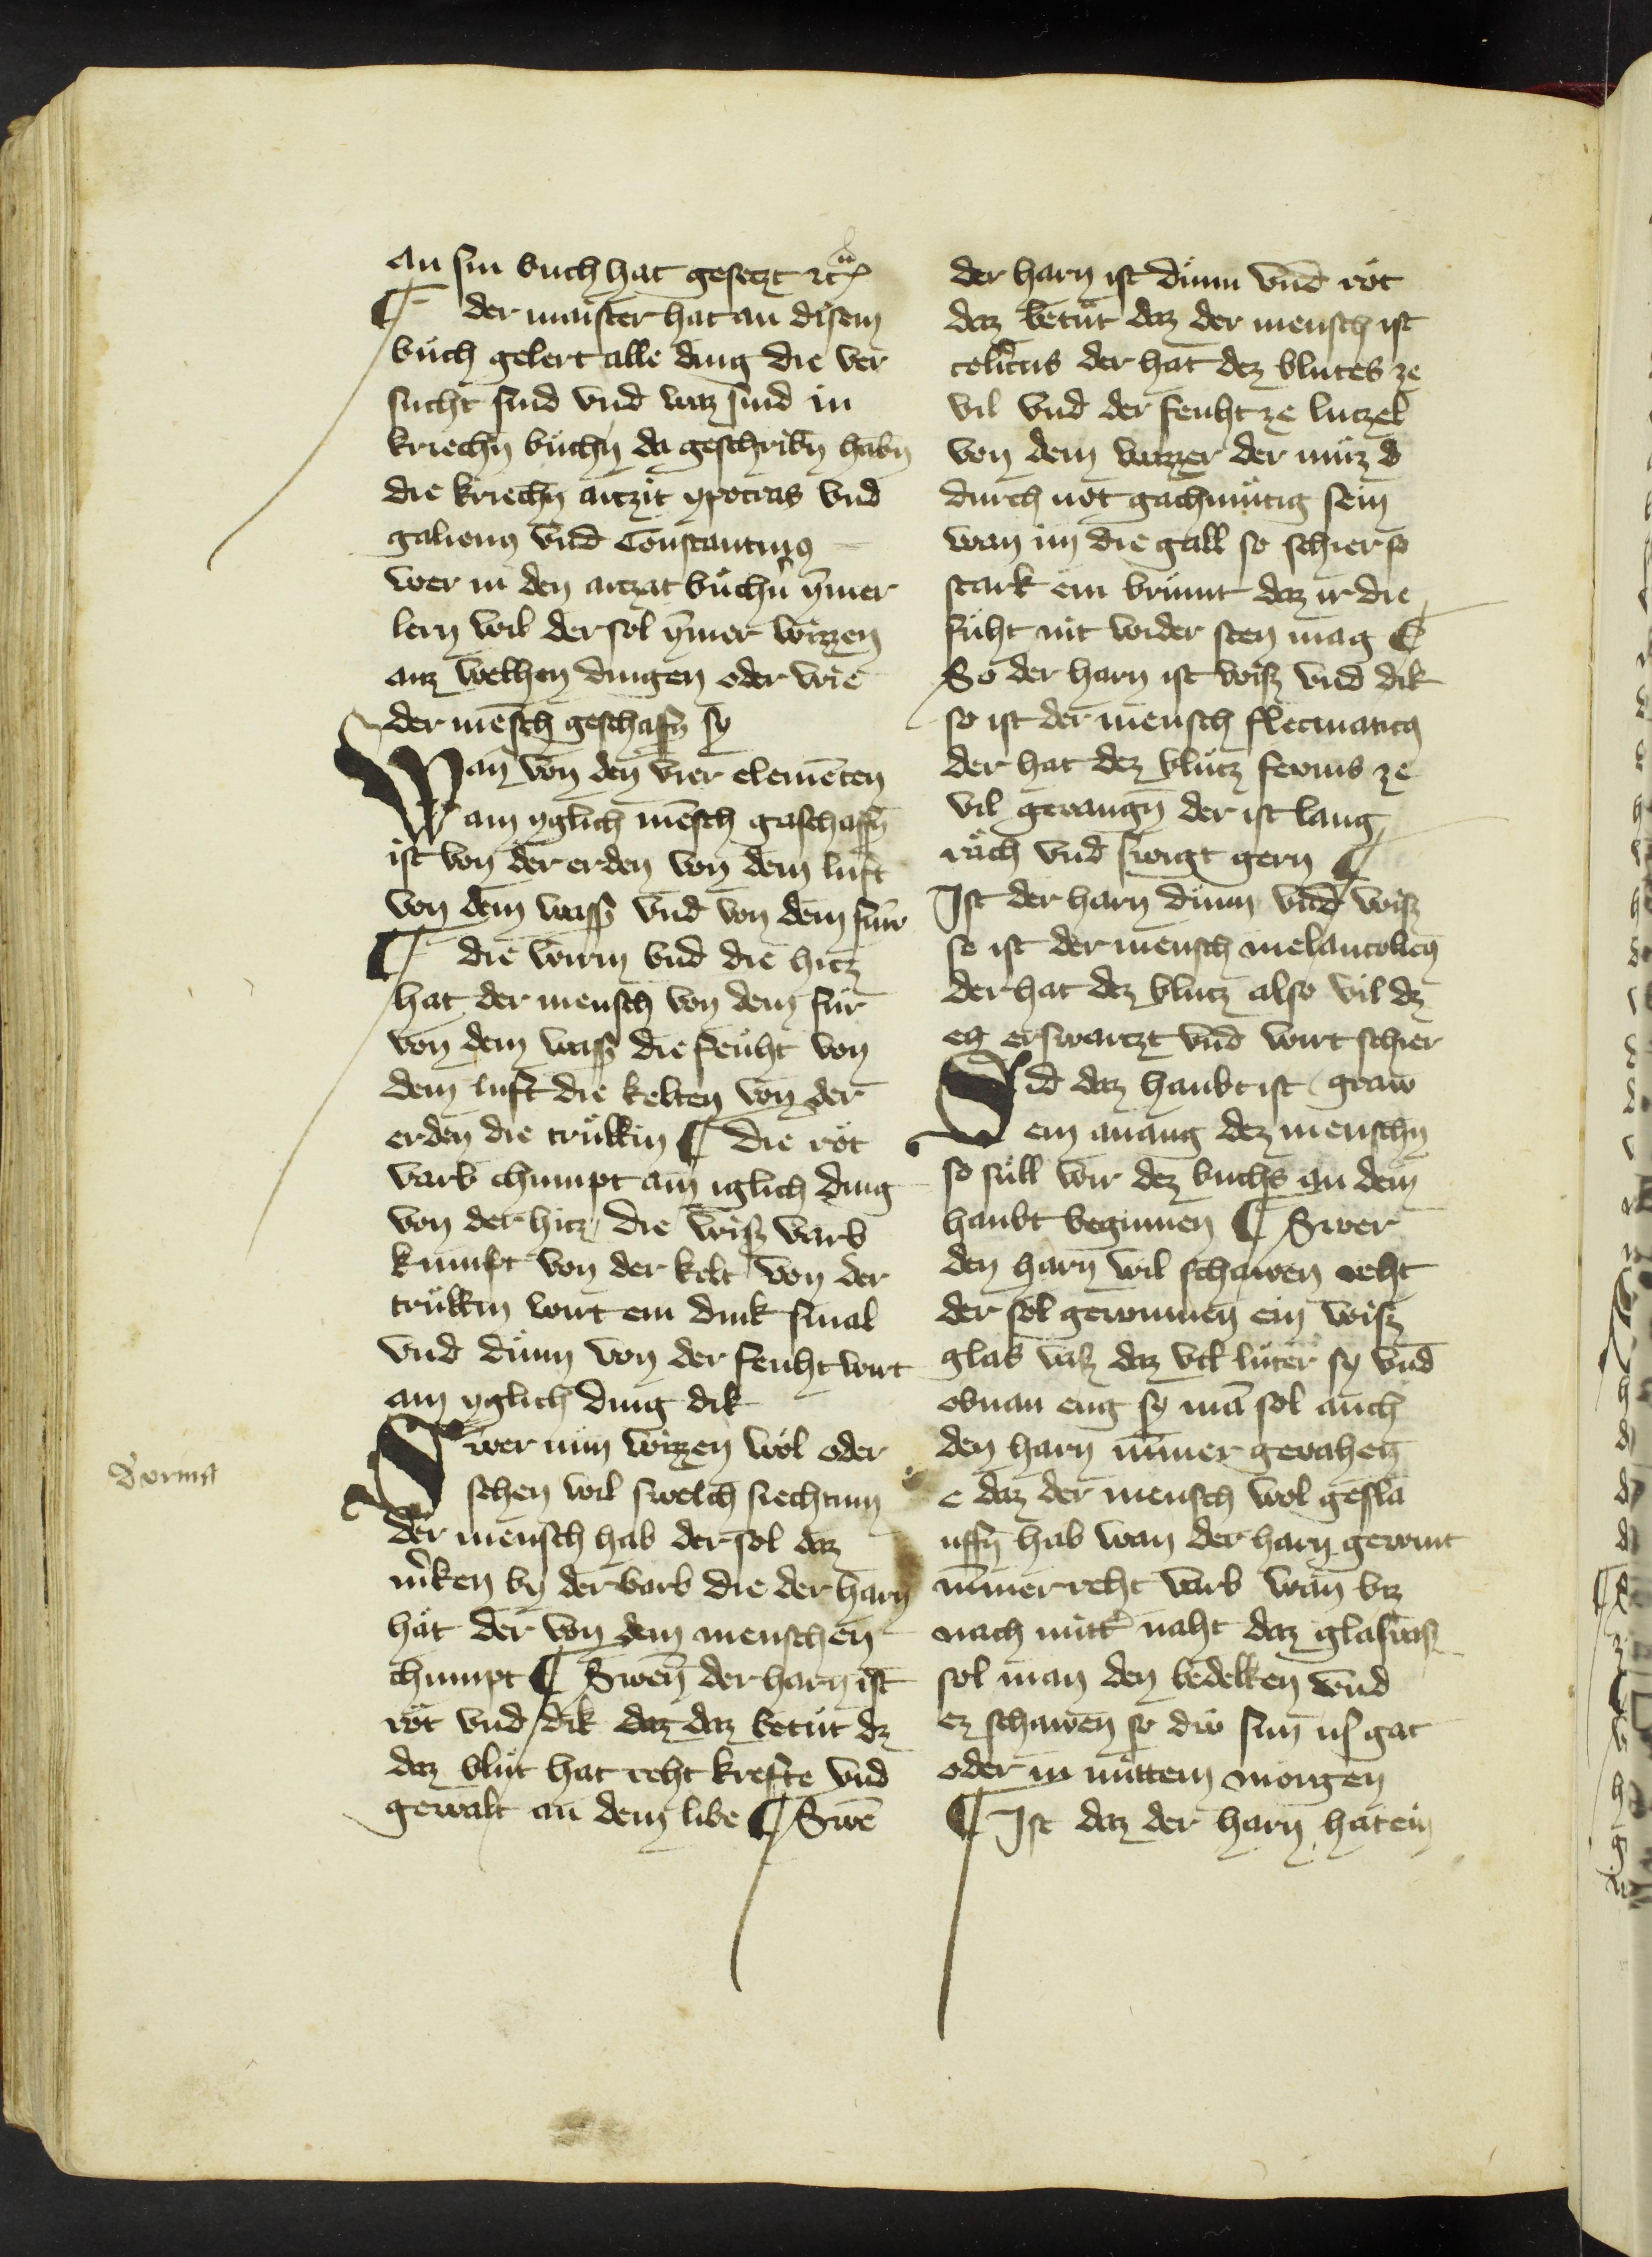 an sin buch hat gesetzt ⁊cͣ
¶ der maister hat an disem
bůch gelert alle ding die ver
sucht sind vnd waz sind in
kriechn̄ bůchn̄ da geschribn̄ habn̄
die kriechn̄ artzit ypocras vnd
galienꝰ vnd Constantinꝰ
wer in den artzat bůchn̄ ȳmer
lern wil der sol ȳmer wizzen
auz welhen dingen oder wie
der mēsch geschaffn̄ sy
Wan von den vier elemēten
ain yglich mēsch geschaffn̄
ist von der erden von dem luft
von dem wasß vnd von dem fůr
¶ die wirm vnd die hitz
hat der mensch von dem fůr
von dem wasß die feuht von
dem luft die kelten von der
erden die trůkkin ¶ die röt
varb chumpt ain iglich ding
von der hitz die wiß varb
kumpt von der kelt von der
trůkkin wirt ein dink smal
vnd důnn von der feuht wirt
ain yglich ding dik
Swer nun wizzen wöl oder
sehen wil swelch siechtum
der mensch hab der sol daz
m̄ken by der varb die der harn
hät der von dem menschen
chumpt ¶ Swen̄ der harn ist
röt vnd dik daz daz betůt dz
daz blůt hat reht krefte vnd
gewalt an dem libe ¶ Swē
der harn ist důnn vnd röt
daz betůt daz der mensch ist
colītus der hat dez blutes ze
vil vnd der feuht ze lutzel
von dem der můz d
durch not gachmůtig sein
wan im die gall so schier so
stark ein brinnt daz ir die
fůht nit wider sten mag ¶
So der harn ist wiß vnd dik
so ist der mensch flecmaticꝰ
der hat dez blůtz ze
vil gevangn̄ der ist lang
räch vnd swigt gern ¶
Ist der harn důnn vnd wiß
so ist der mensch melancolicꝰ
der hat dez blutz also vil dz
eꝫ erswartzt vnd wirt schier
Sid daz haubt ist graw
ein anang dez menschn̄
so sůll wir dez buchs an dem
haubt beginnen ¶ Swer
den harn wil schawen reht
der sol gewinnen ein wiß
glas vaß daz vil luter sy vnd
obnan eng sy mā sol auch
den harn nim̄er gevahen
e daz der mensch wol gesla
uffn̄ hab wan der harn gewint
nim̄er reht varb wan biz
nach mittͬ naht daz glasvaß
sol man den bedekken vnd
eꝫ schawen so diw sunn uf gat
oder in mittem morgen
¶ Ist daz der harn hat ein